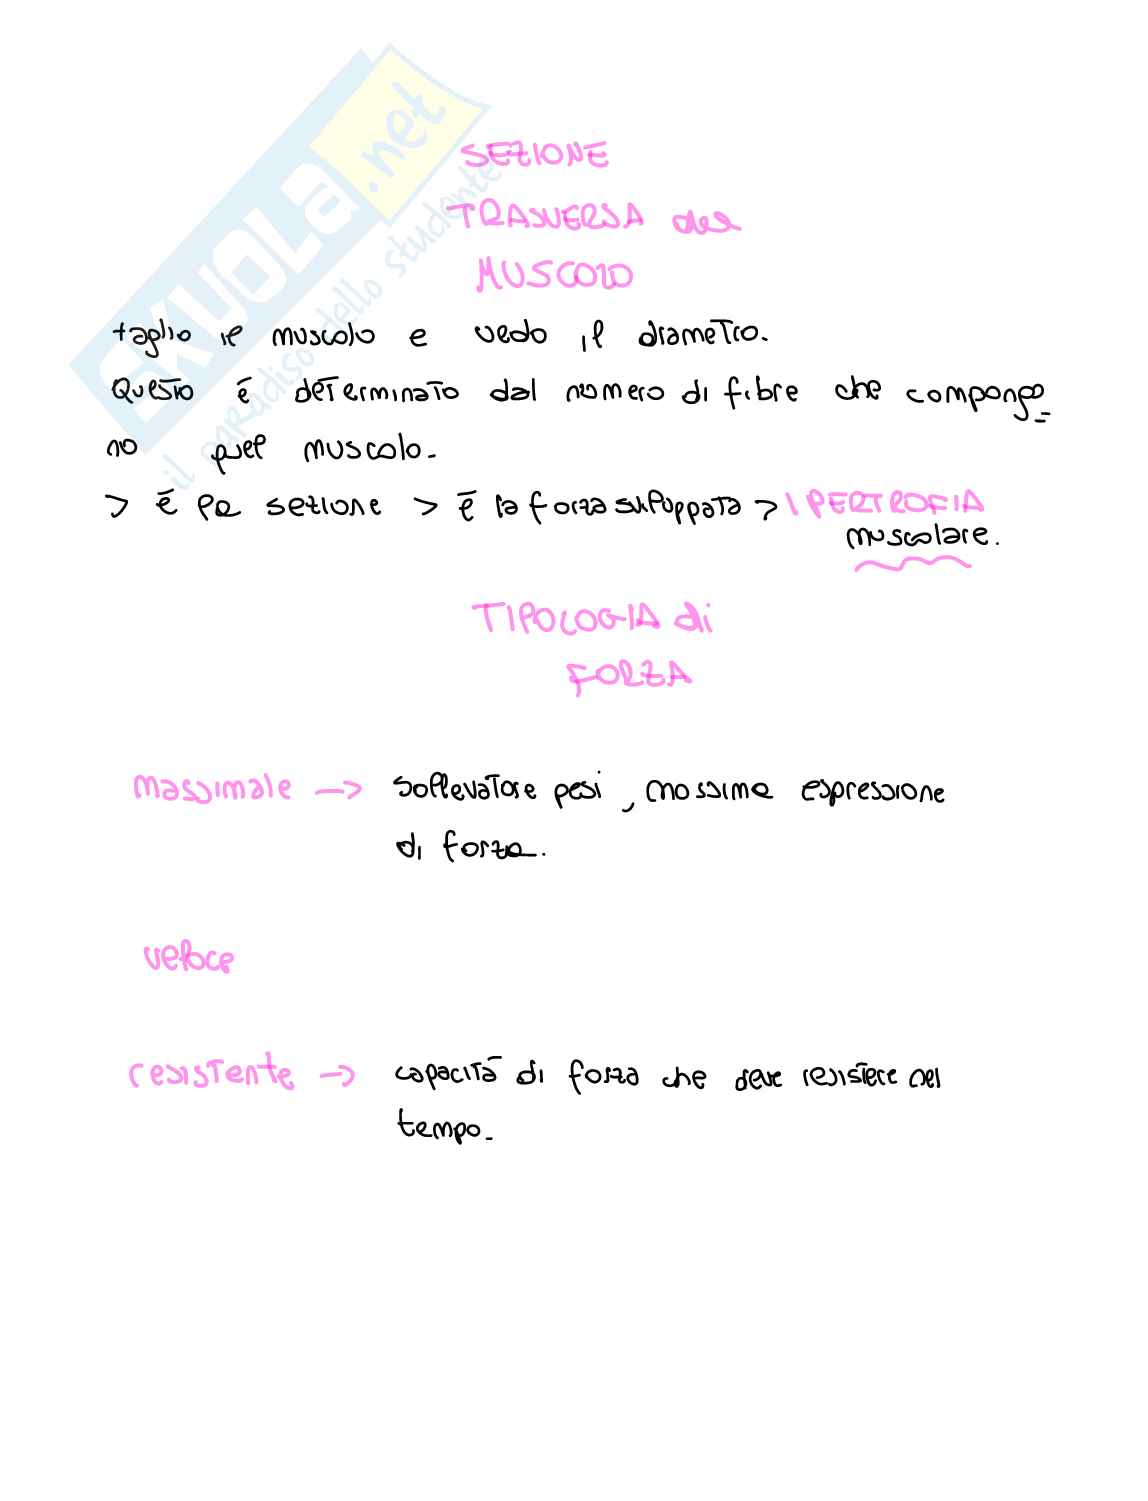 SKUOLA.net
il paradiso dello studente
SEZIONE
TRASVERSA del
MUSCOLO
taglio il muscolo e vedo il diametro.
Questo è determinato dal numero di fibre che compongo=
no quel muscolo.
> è la sezione > è la forza sviluppata > IPERTROFIA
muscolare.
TIPOLOGIA di
FORZA
massimale → sollevatore pesi, massima espressione
di forza.
veloce
resistente → capacità di forza che deve resistere nel
tempo.